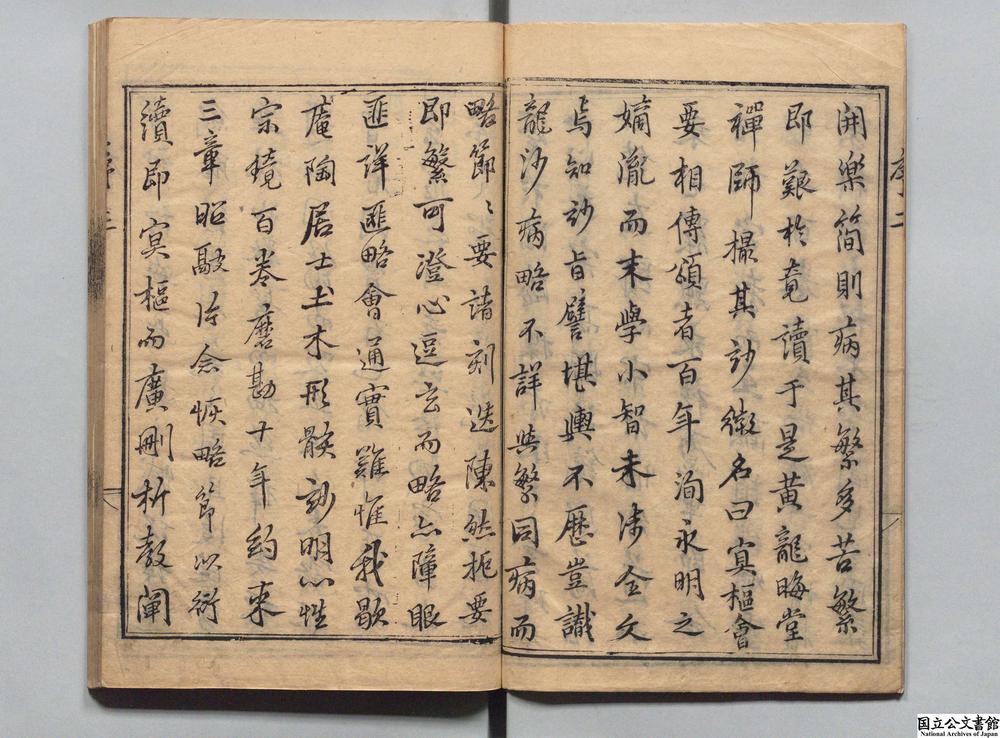 開樂簡則病其繁多苦繁
即艱於竟讀于是黃龍晦堂
禪師撮其玅徽名曰冥樞會
要相傳頌者百年洵永明之
嫡瀧而末學小智未涉全文
焉知玅旨譬堪輿不歷豈識
龍沙病略不詳與繁同病而
略節〻要請刻迭陳然扼要
即繁可澄心逗玄而略亦障眼
匪詳匪略會通實難惟我歇
庵陶居士土木形骸玅明心性
宗鏡百卷磨勘十年約來
三章昭融片念恢略節以衍
讀即冥樞而廣刪析教闡
序二
国立公文書館
National Archives of Japan